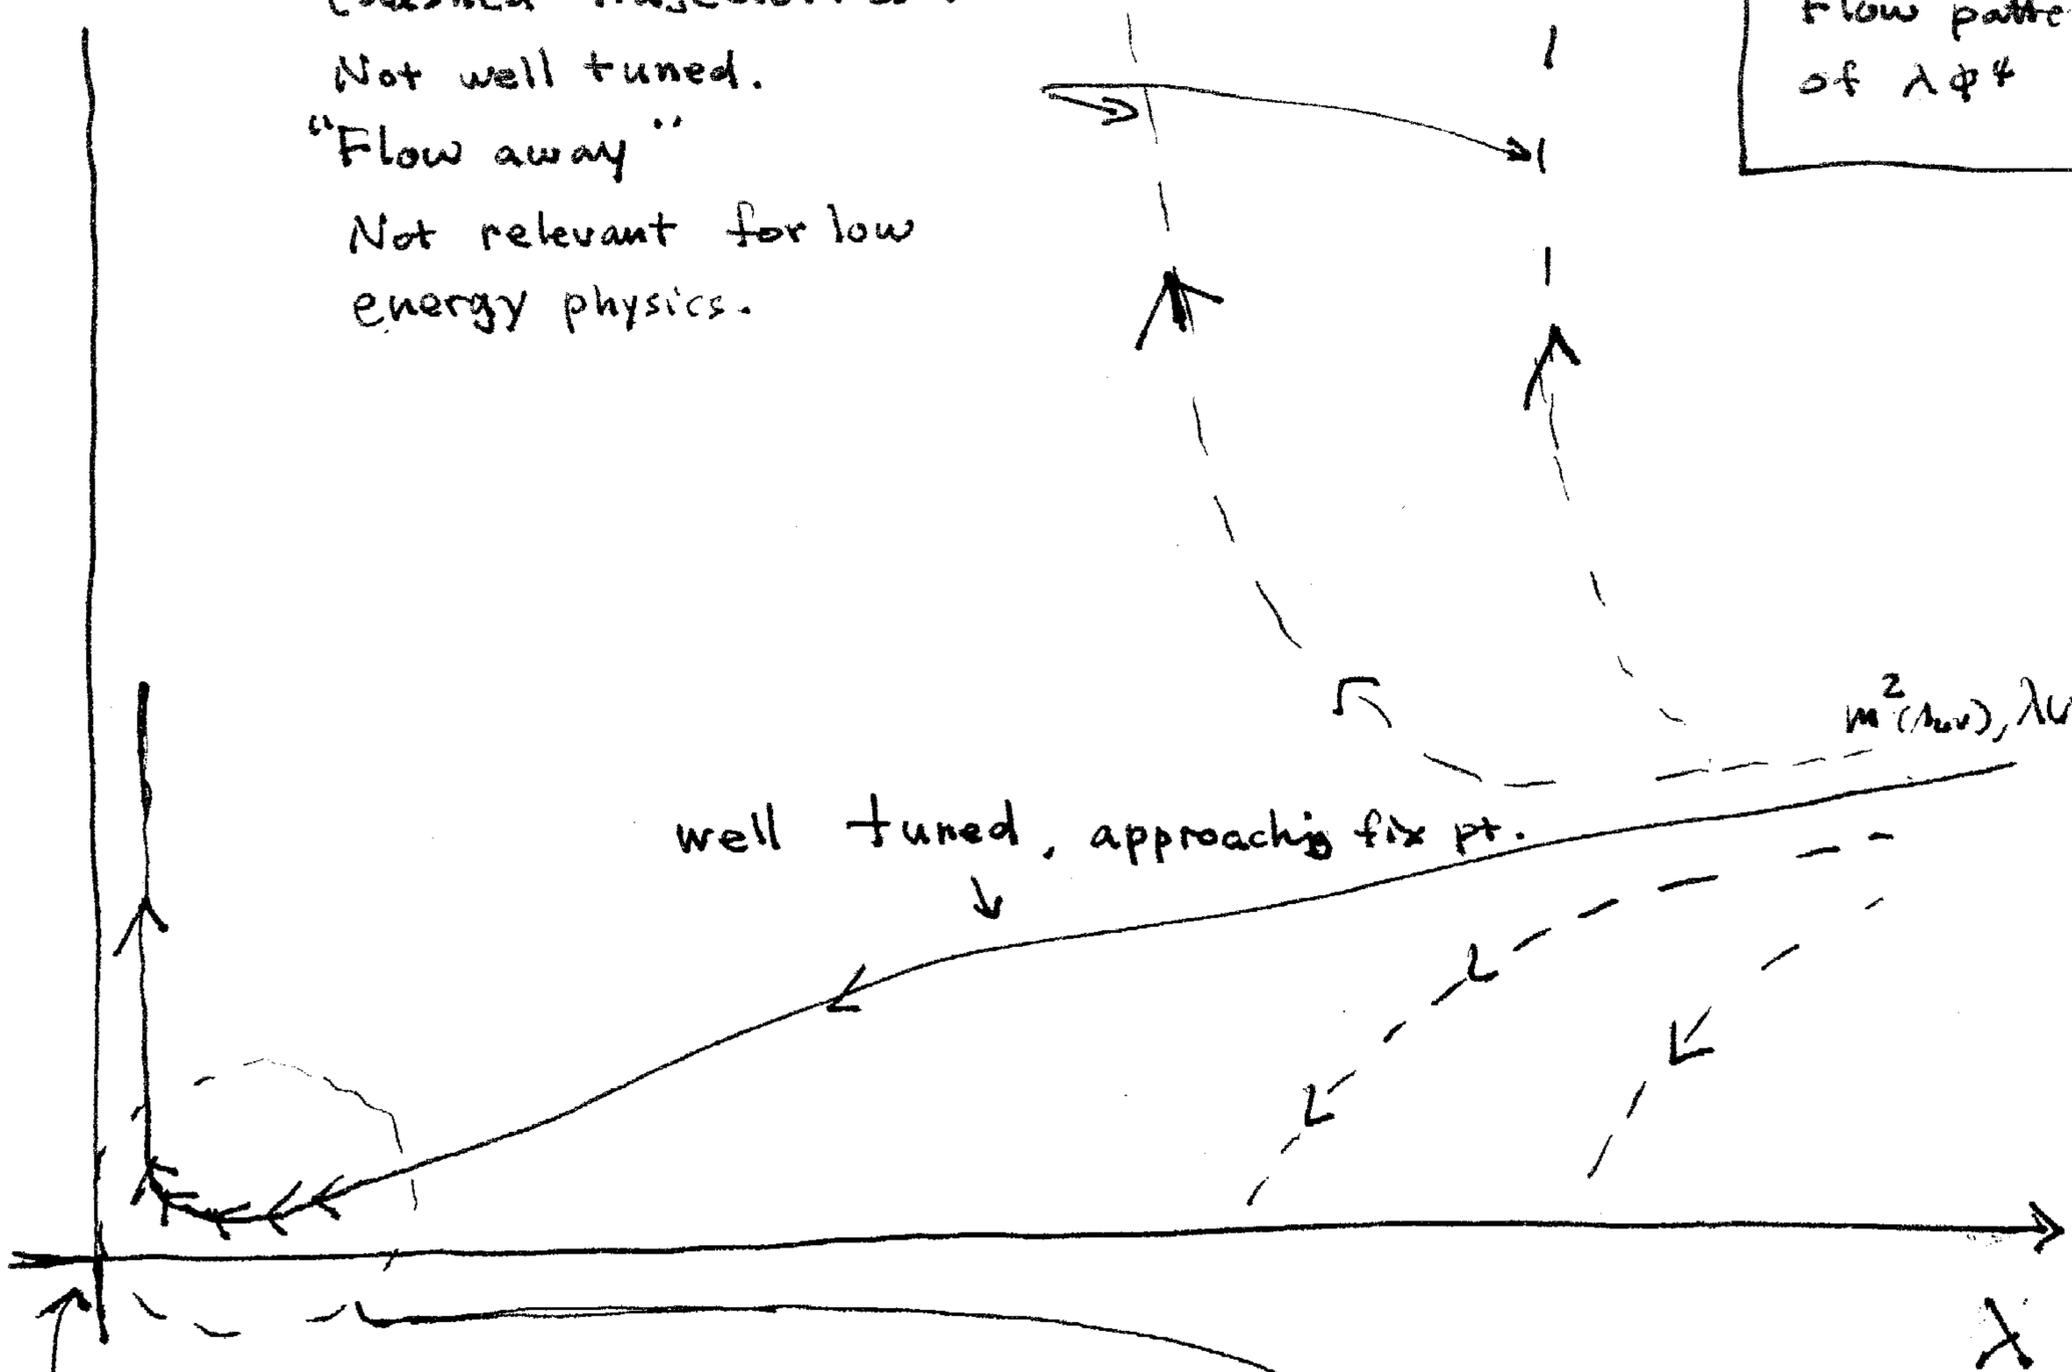 Not well tuned.
"Flow away"
Not relevant for low
energy physics.
Flow
of λφ⁴
m²(Λuv), λ
well tuned, approachig fix pt.
λ